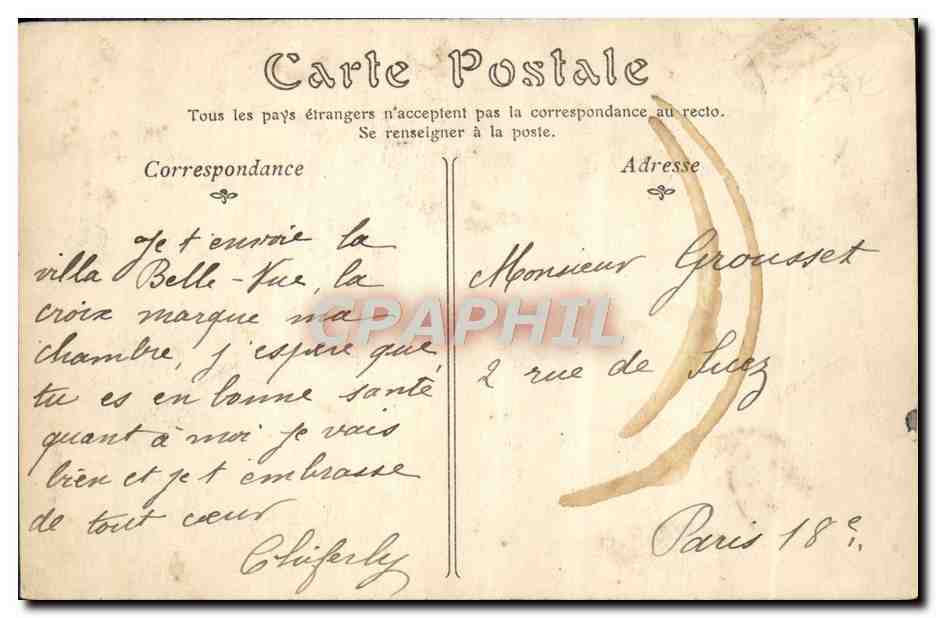 Carte Postale
Tous les pays étrangers n'acceptent pas la correspondance au recto.
Se renseigner à la poste.
Correspondance
Je t'envoie la
villa Belle-Vue, la
croix marque ma
chambre, j'espère que
tu es en bonne santé
quant à moi je vais
bien et je t embrasse
de tout cœur
Adresse
Monsieur Grousset
2 rue de Suez
Paris 18e.
CPAPHIL